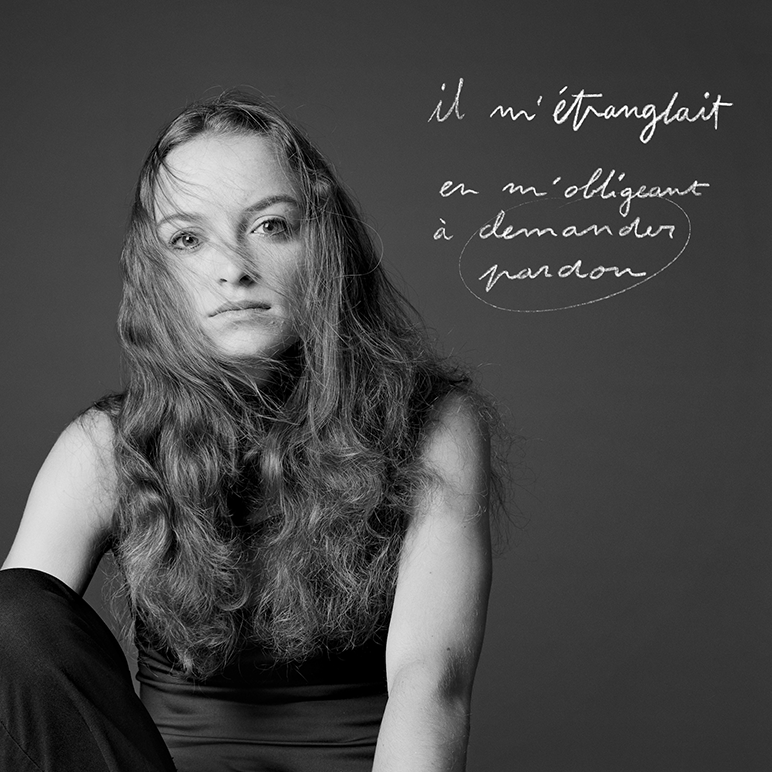 il m'étranglait
en m'obligeant
à demander
pardon